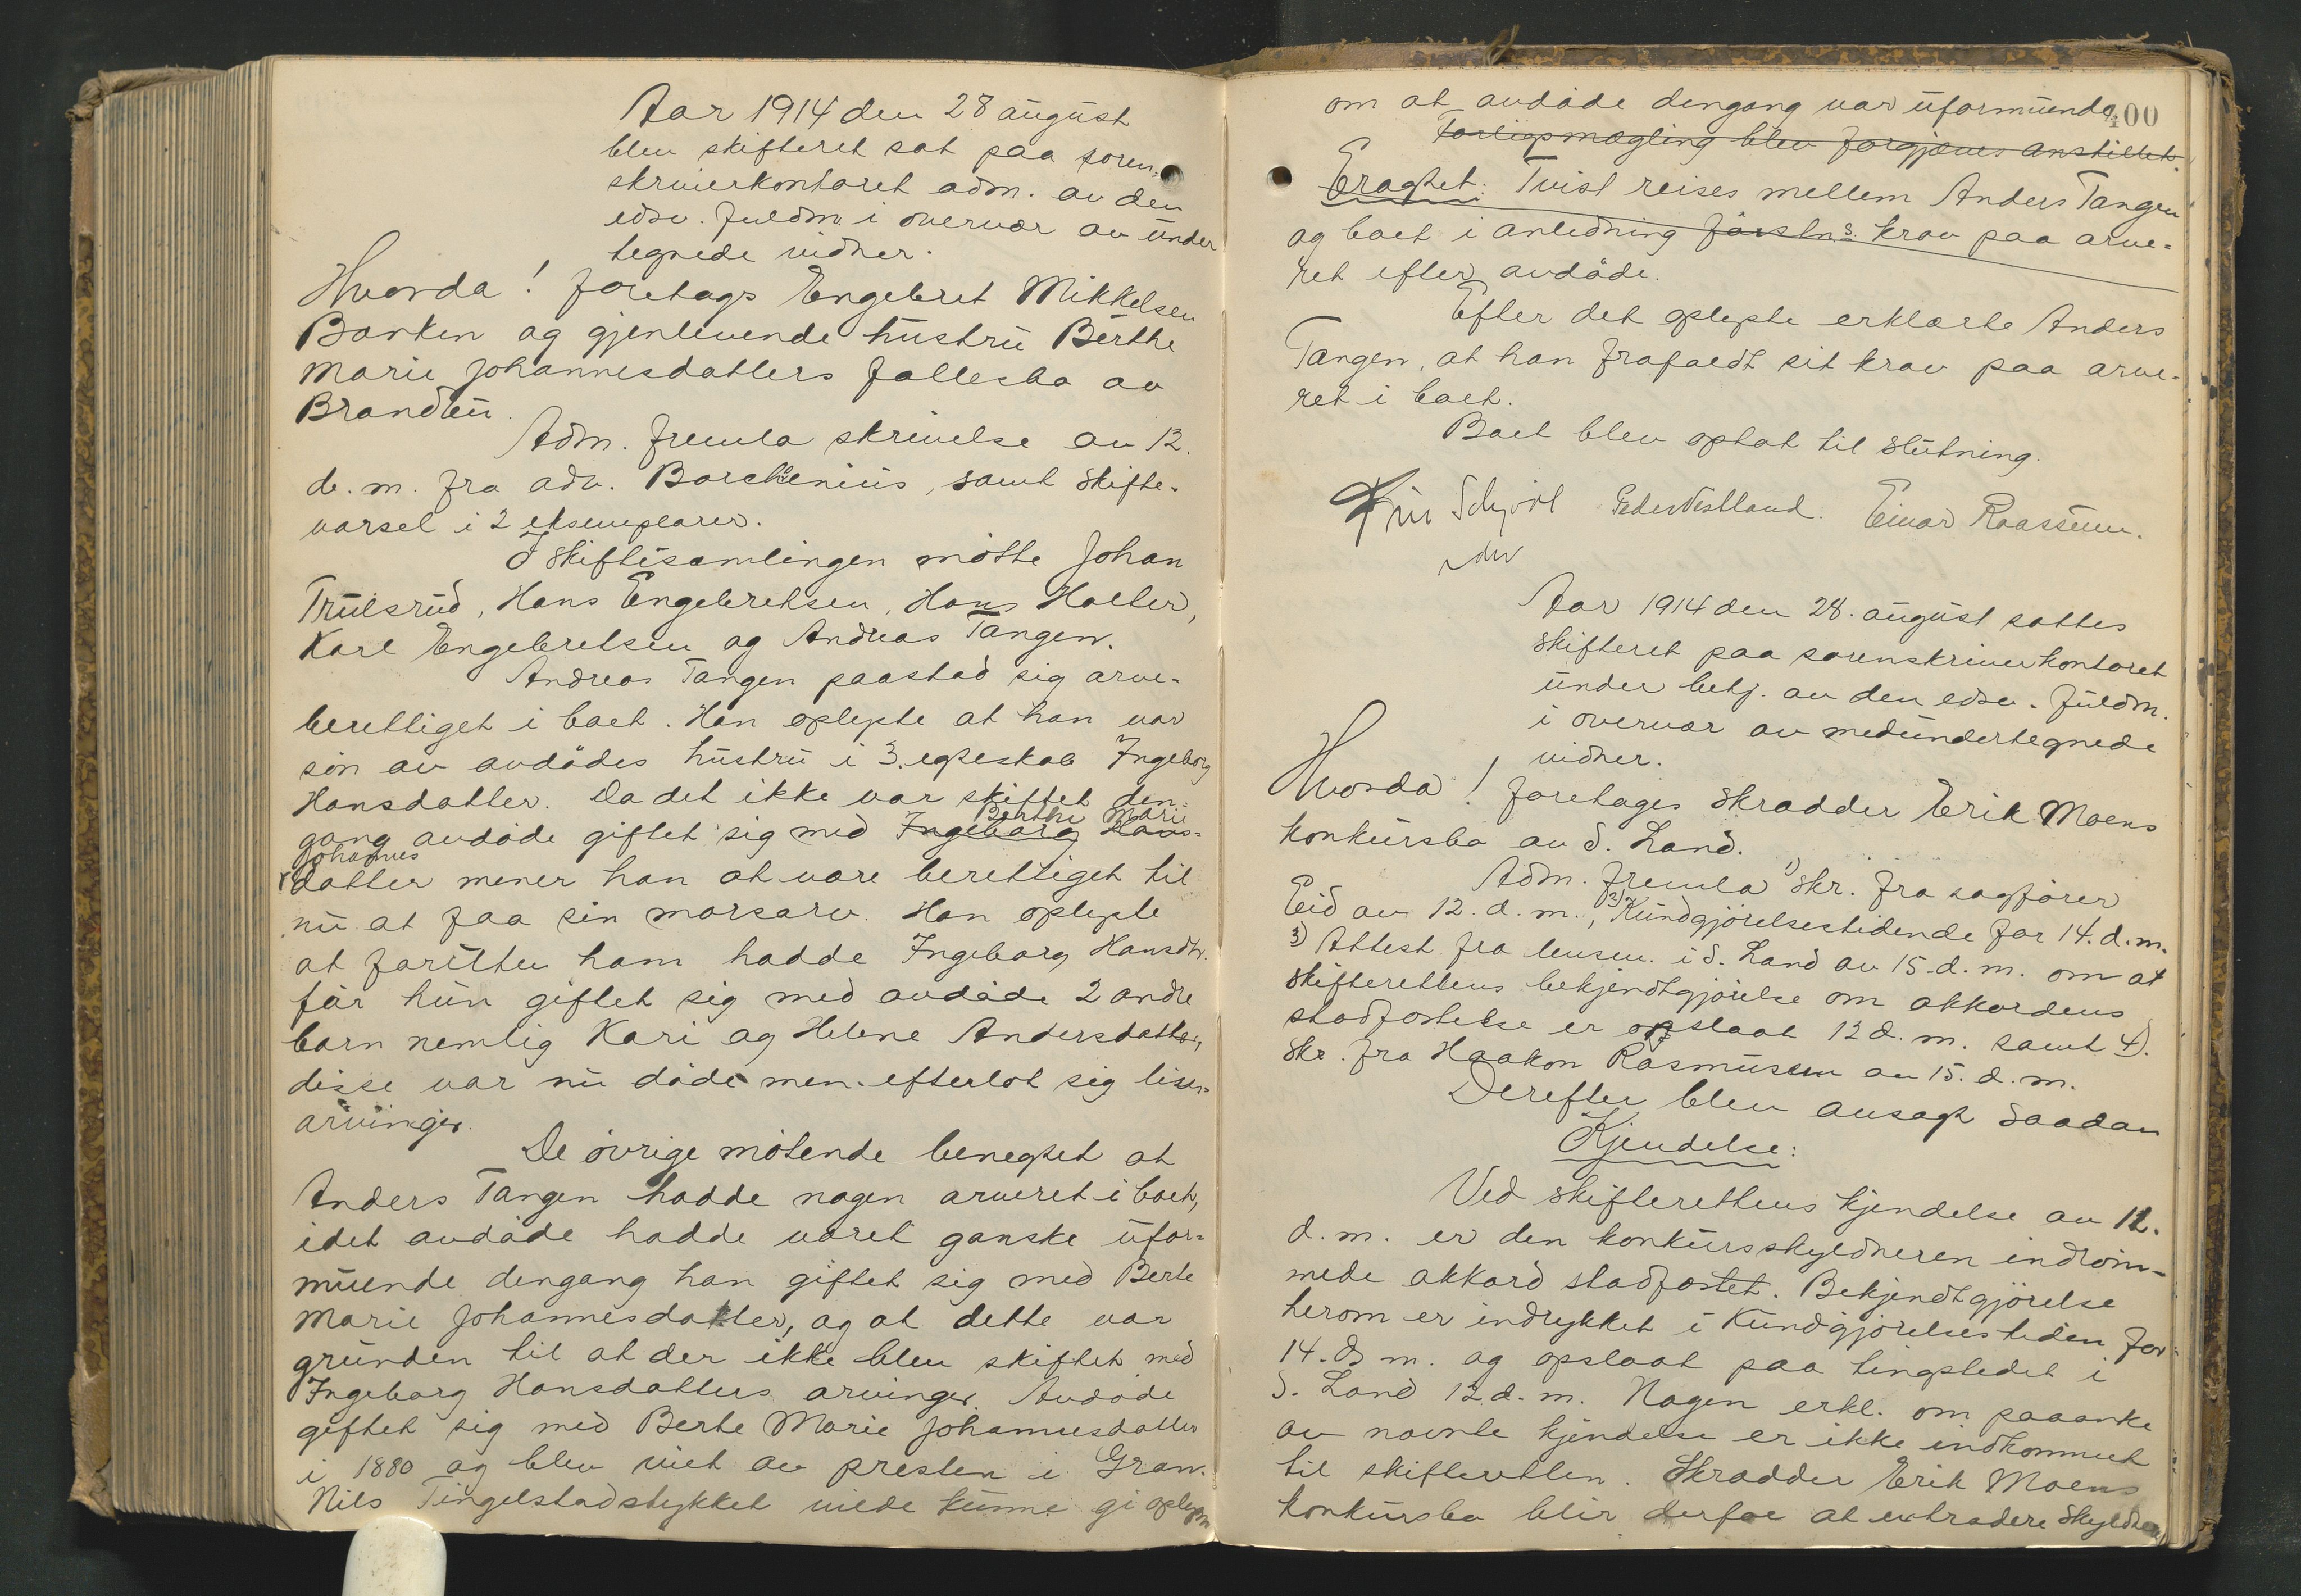 Aar 1914 den 28 august
blev skifteret sat paa soren-
skriverkontoret adm. av den
edsv. fuldm. i overvær av under
tegnede vidner.
Hvorda! foretags Engebret Mikkelsen
Borken og gjenlevende hustru Berthe
Marie Johannesdatters fællesbo av
Brandbu.
Adm. fremla skrivelse av 12.
ds. m. fra adv. Borchenius, samt skifte-
varsel i 2 eksemplarer.
I skiftesamlingen møtte Johan
Trulsrud, Hans Engebretsen, Hans Halter,
Karl Engebretsen og Andreas Tangen.
Andreas Tangen paastod sig arve-
berettiget i boet. Han oplyste at han var
søn av avdødes hustru i 3. egteskab Ingeborg
Hansdatter. Da det ikke var skiftet den-
gang avdøde giftet sig med Ingeborg Hans- Berthe Marie
Johannes
datter mener han at være berettiget til
nu at faa sin morsarv. Han oplyste
at foruten ham hadde Ingeborg Hansdtr.
før hun giftet sig med avdøde 2 andre
barn nemlig Kari og Helene Andersdatter,
disse var nu døde men efterlot sig livs-
arvinger.
De øvrige møtende benegtet at
Anders Tangen hadde nogen arveret i boet,
idet avdøde hadde været ganske ufor-
muende dengang han giftet sig med Berte
Marie Johannesdatter, og at dette var
grunden til at der ikke blev skiftet med
Ingeborg Hansdatters arvinger. Avdøde
giftet sig med Berte Marie Johannesdatter
i 1880 og blev viet av presten i Gran.
Nils Tingelstadstykket vilde kunne gi oplysn
400
om at avdøde dengang var uformuende
Forligsmægling blev forgjæves anstillet.
Eragtet: Tvist reises mellem Anders Tangen
og boet i anledning førstns. krav paa arve-
ret efter avdøde.
Efter det oplyste erklærte Anders
Tangen, at han frafaldt sit krav paa arve-
ret i boet.
Boet blev optat til slutning.
Peder Vestland. Einar Raassum.
Aar 1914 den 28. august sattes
skifteret paa sorenskriverkontoret
under betj. av den edsv. fuldm.
i overvær av medundertegnede
vidner.
Hvorda! foretages skrædder Erik Moens
konkursbo av S. Land.
Adm. fremla 1) skr. fra sagfører
Eid av 12. d. m., 2) Kundgjørelsestidende for 14. d. m.
3) Attest fra lensm. i S. Land av 15. d. m. om at
skifterettens bekjendtgjørelse om akkordens
stadfæstelse er opslaat 12 d. m. samt 4).
Skr. fra Haakon Rasmussen av 15. d. m.
Derefter blev avsagt saadan
Kjendelse:
Ved skifterettens kjendelse av 12.
d. m. er den konkursskyldneren indrøm-
mede akkord stadfæstet. Bekjendtgjørelse
herom er indrykket i Kundgjørelsestiden for
14. d. m. og opslaat paa tingstedet i
S. Land 12. d. m. Nogen erkl. om paaanke
av nævnte kjendelse er ikke indkommet
til skifteretten. Skrædder Erik Moens
konkursbo blir derfor at extradere skyldneren